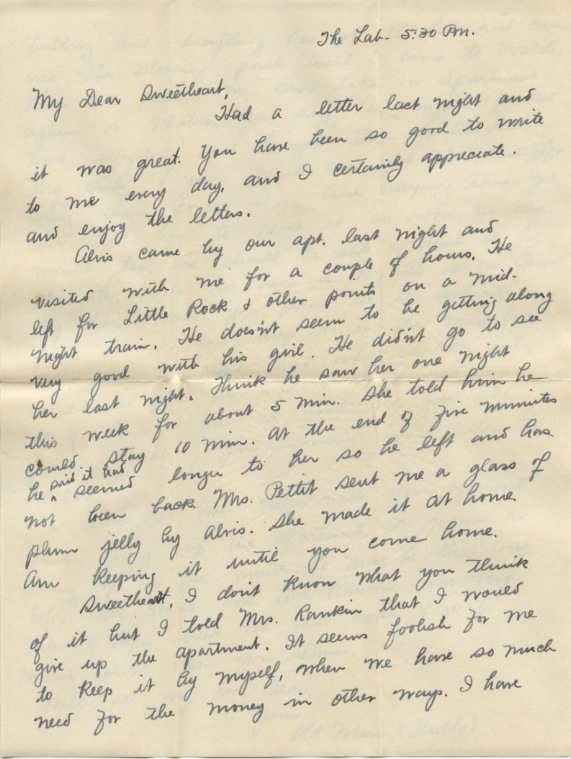 The Lab- 5:30 P.M.
My Dear Sweetheart,
Had a letter last night and
it was great. You have been so good to write
to me every day, and I certainly appreciate.
and enjoy the letters.
Alvis came by our apt. last night and
visited with me for a couple of hours. He
left for Little Rock & other points on a mid-
night train. He doesn't seem to be getting along
very good with his girl. He didn't go to see
her last night. Think he saw her one night
this week for about 5 min. She told him he
could stay 10 min. At the end of five minutes
he said it had seemed longer to her so he left and has
not been back. Mrs. Pettit sent me a glass of
plum jelly by Alvis. She made it at home.
Am keeping it until you come home.
Sweetheart, I don't know what you think
of it but I told Mrs. Rankin that I would
give up the apartment. It seems foolish for me
to keep it by myself, when we have so much
need for the money in other ways. I have